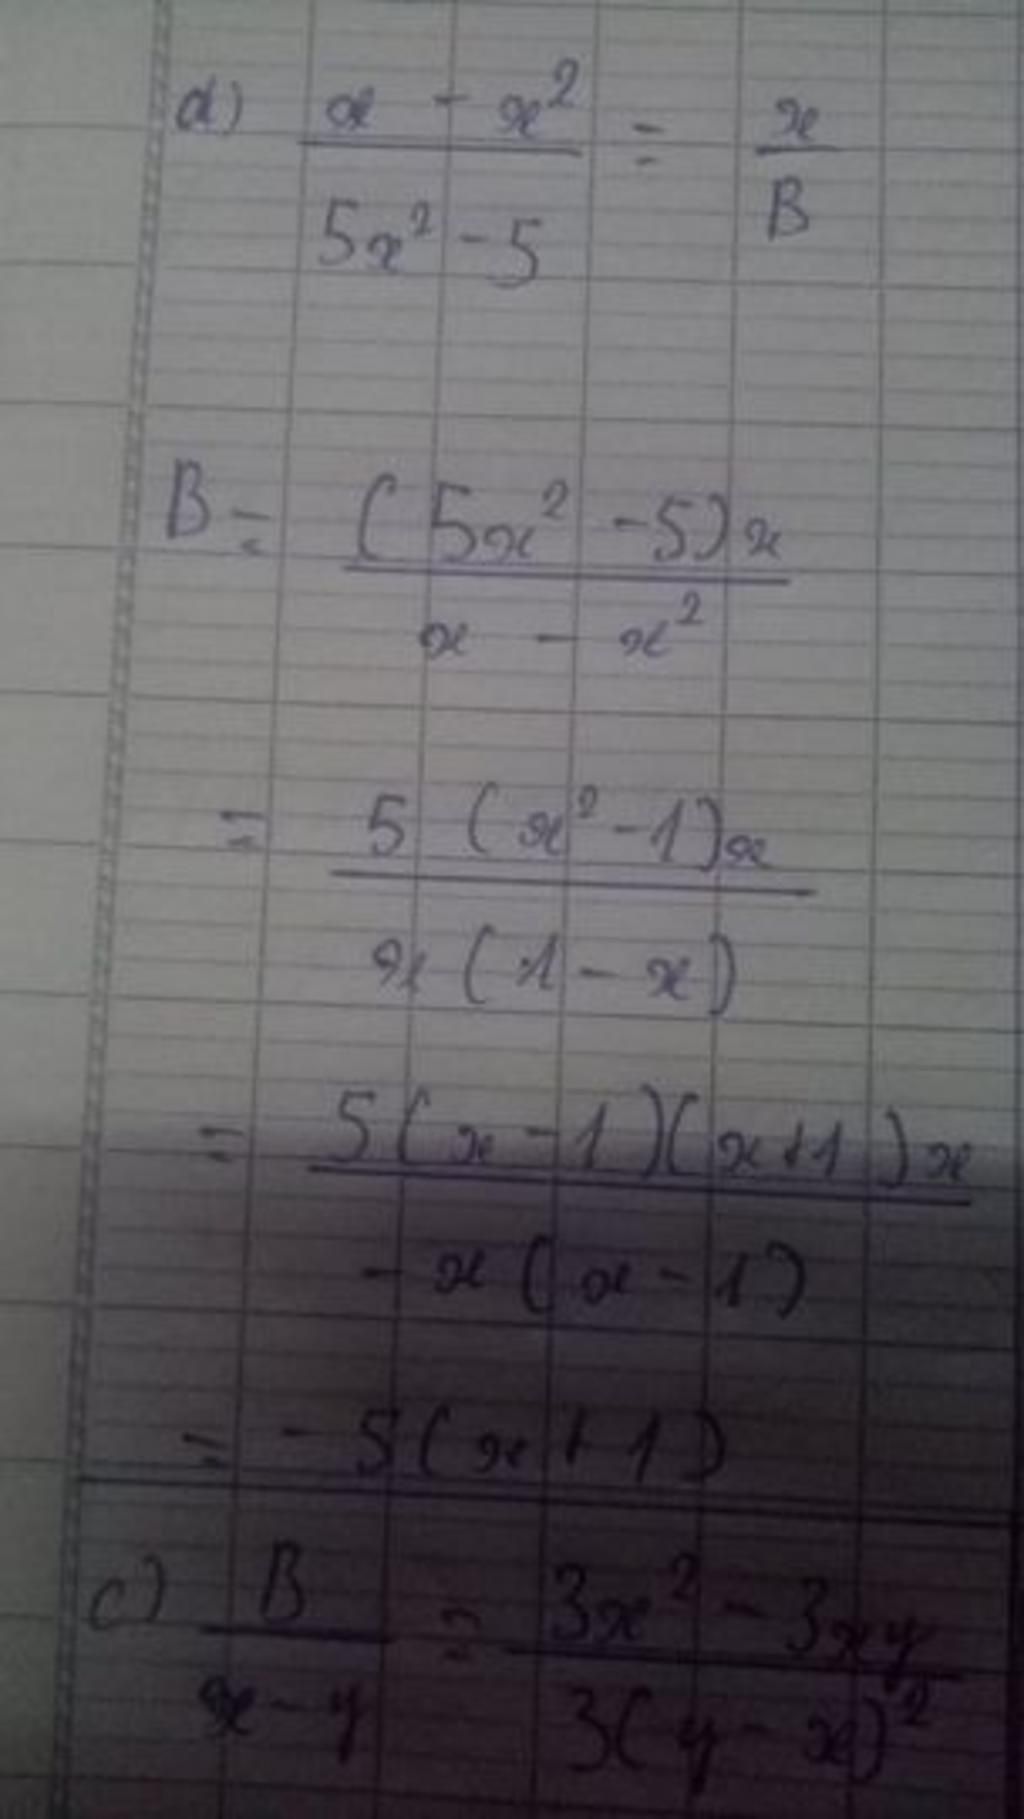 d) (x - x²)/(5x² - 5) = x/B
B = ((5x² - 5)x)/(x - x²)
= (5(x² - 1)x)/(x(1 - x))
= (5(x - 1)(x + 1)x)/(-x(x - 1))
= -5(x + 1)
c) B/(x - y) = (3x² - 3xy)/(3(y - x)²)